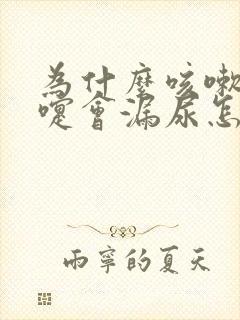 為什麼咳嗽
嚏會漏尿怎
雨寧的夏天